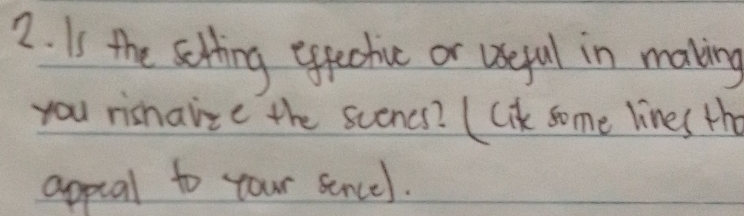 2. Is the setting effective or useful in making
you visnaize the scenes? (Cite some lines tha
appeal to your sence).